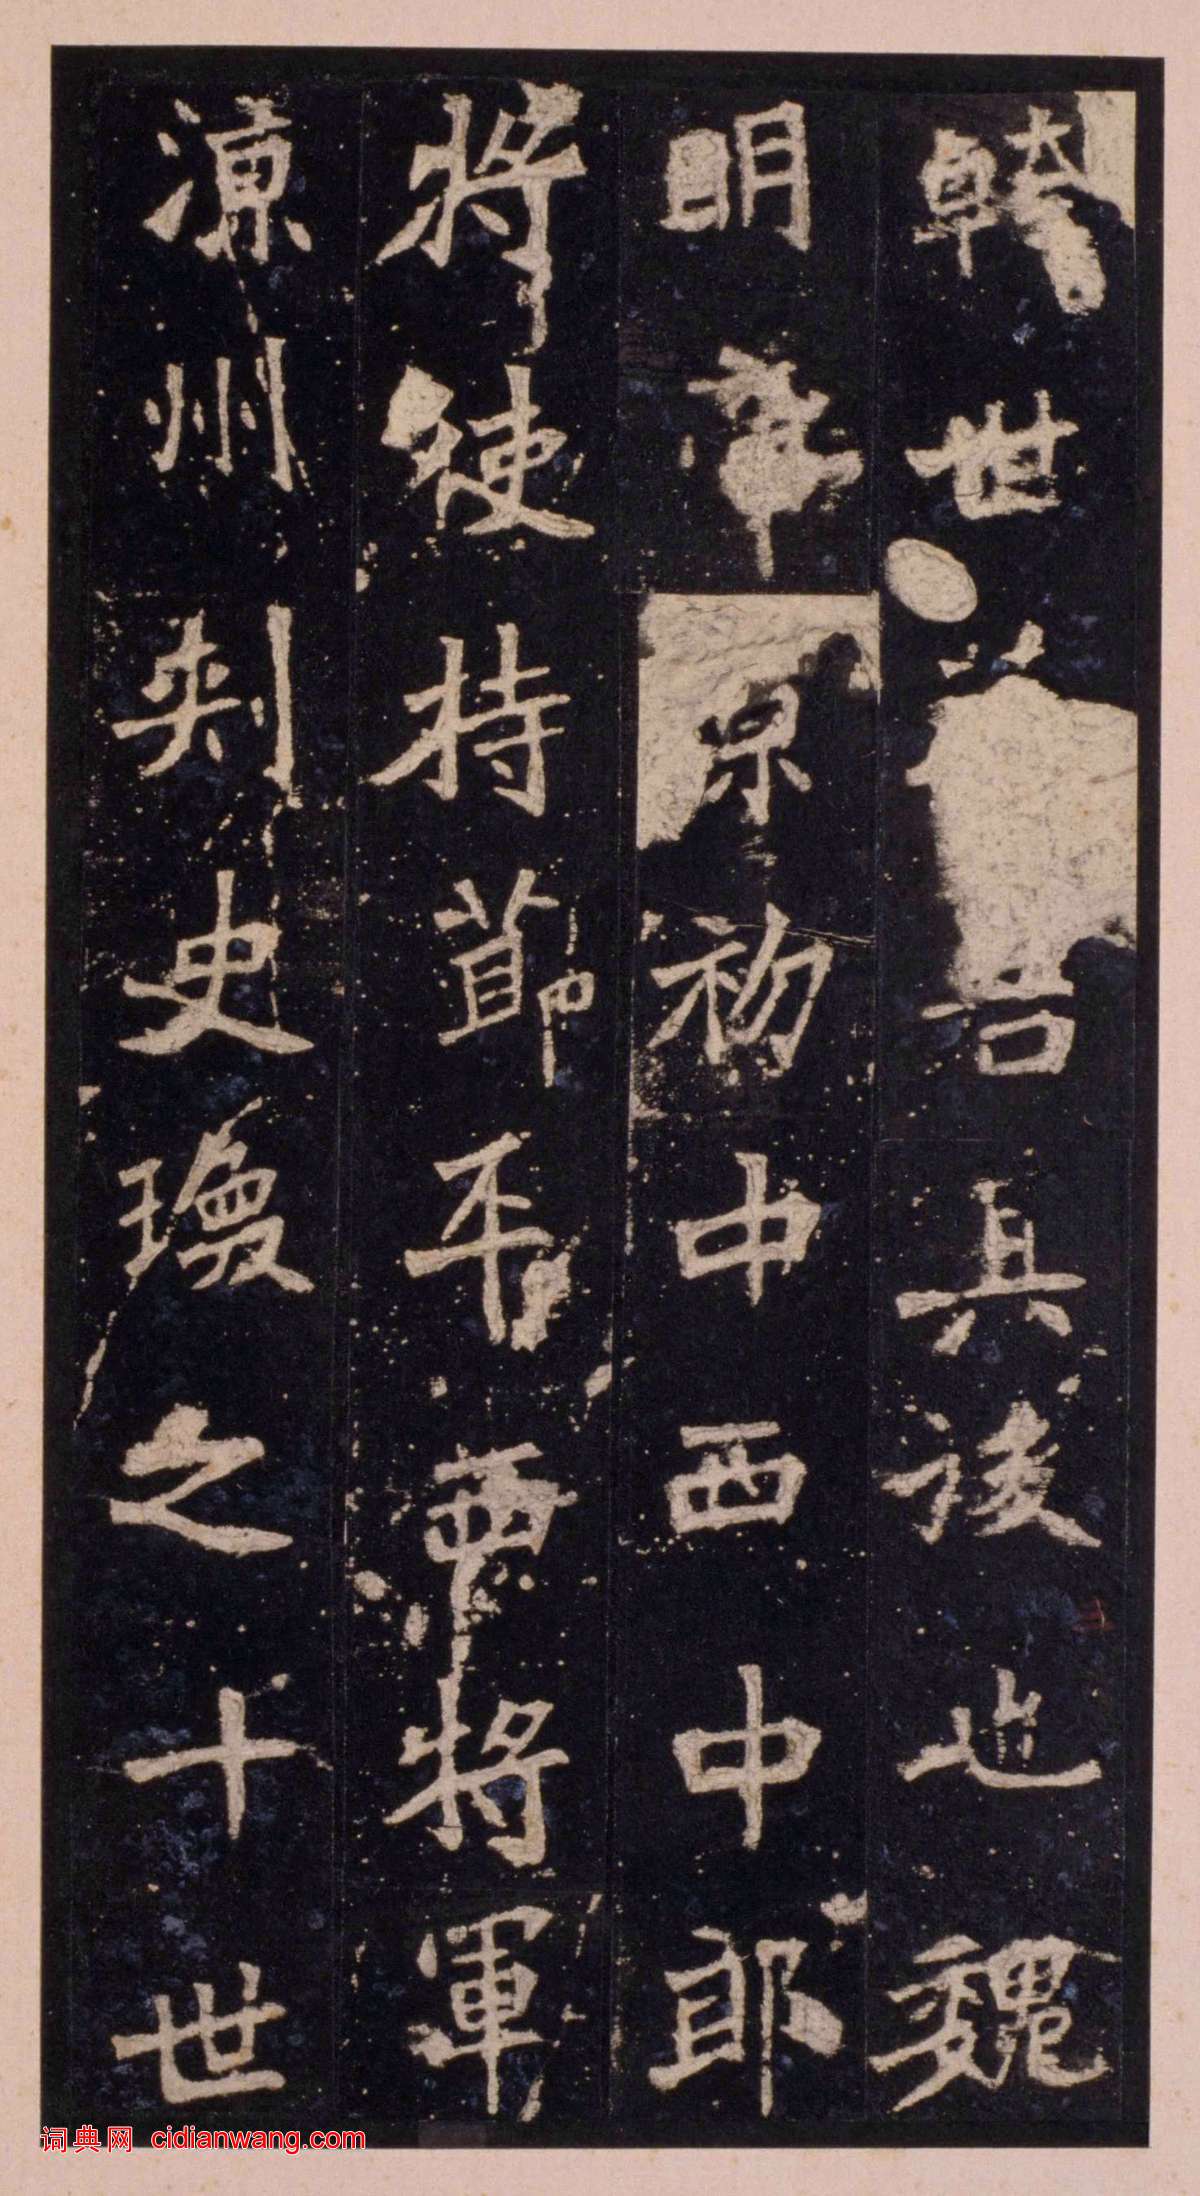 世其後也魏
明帝景初中西中郎
將使持莭平西將軍
凉州刺史瑍之十世
词典网 cidianwang.com